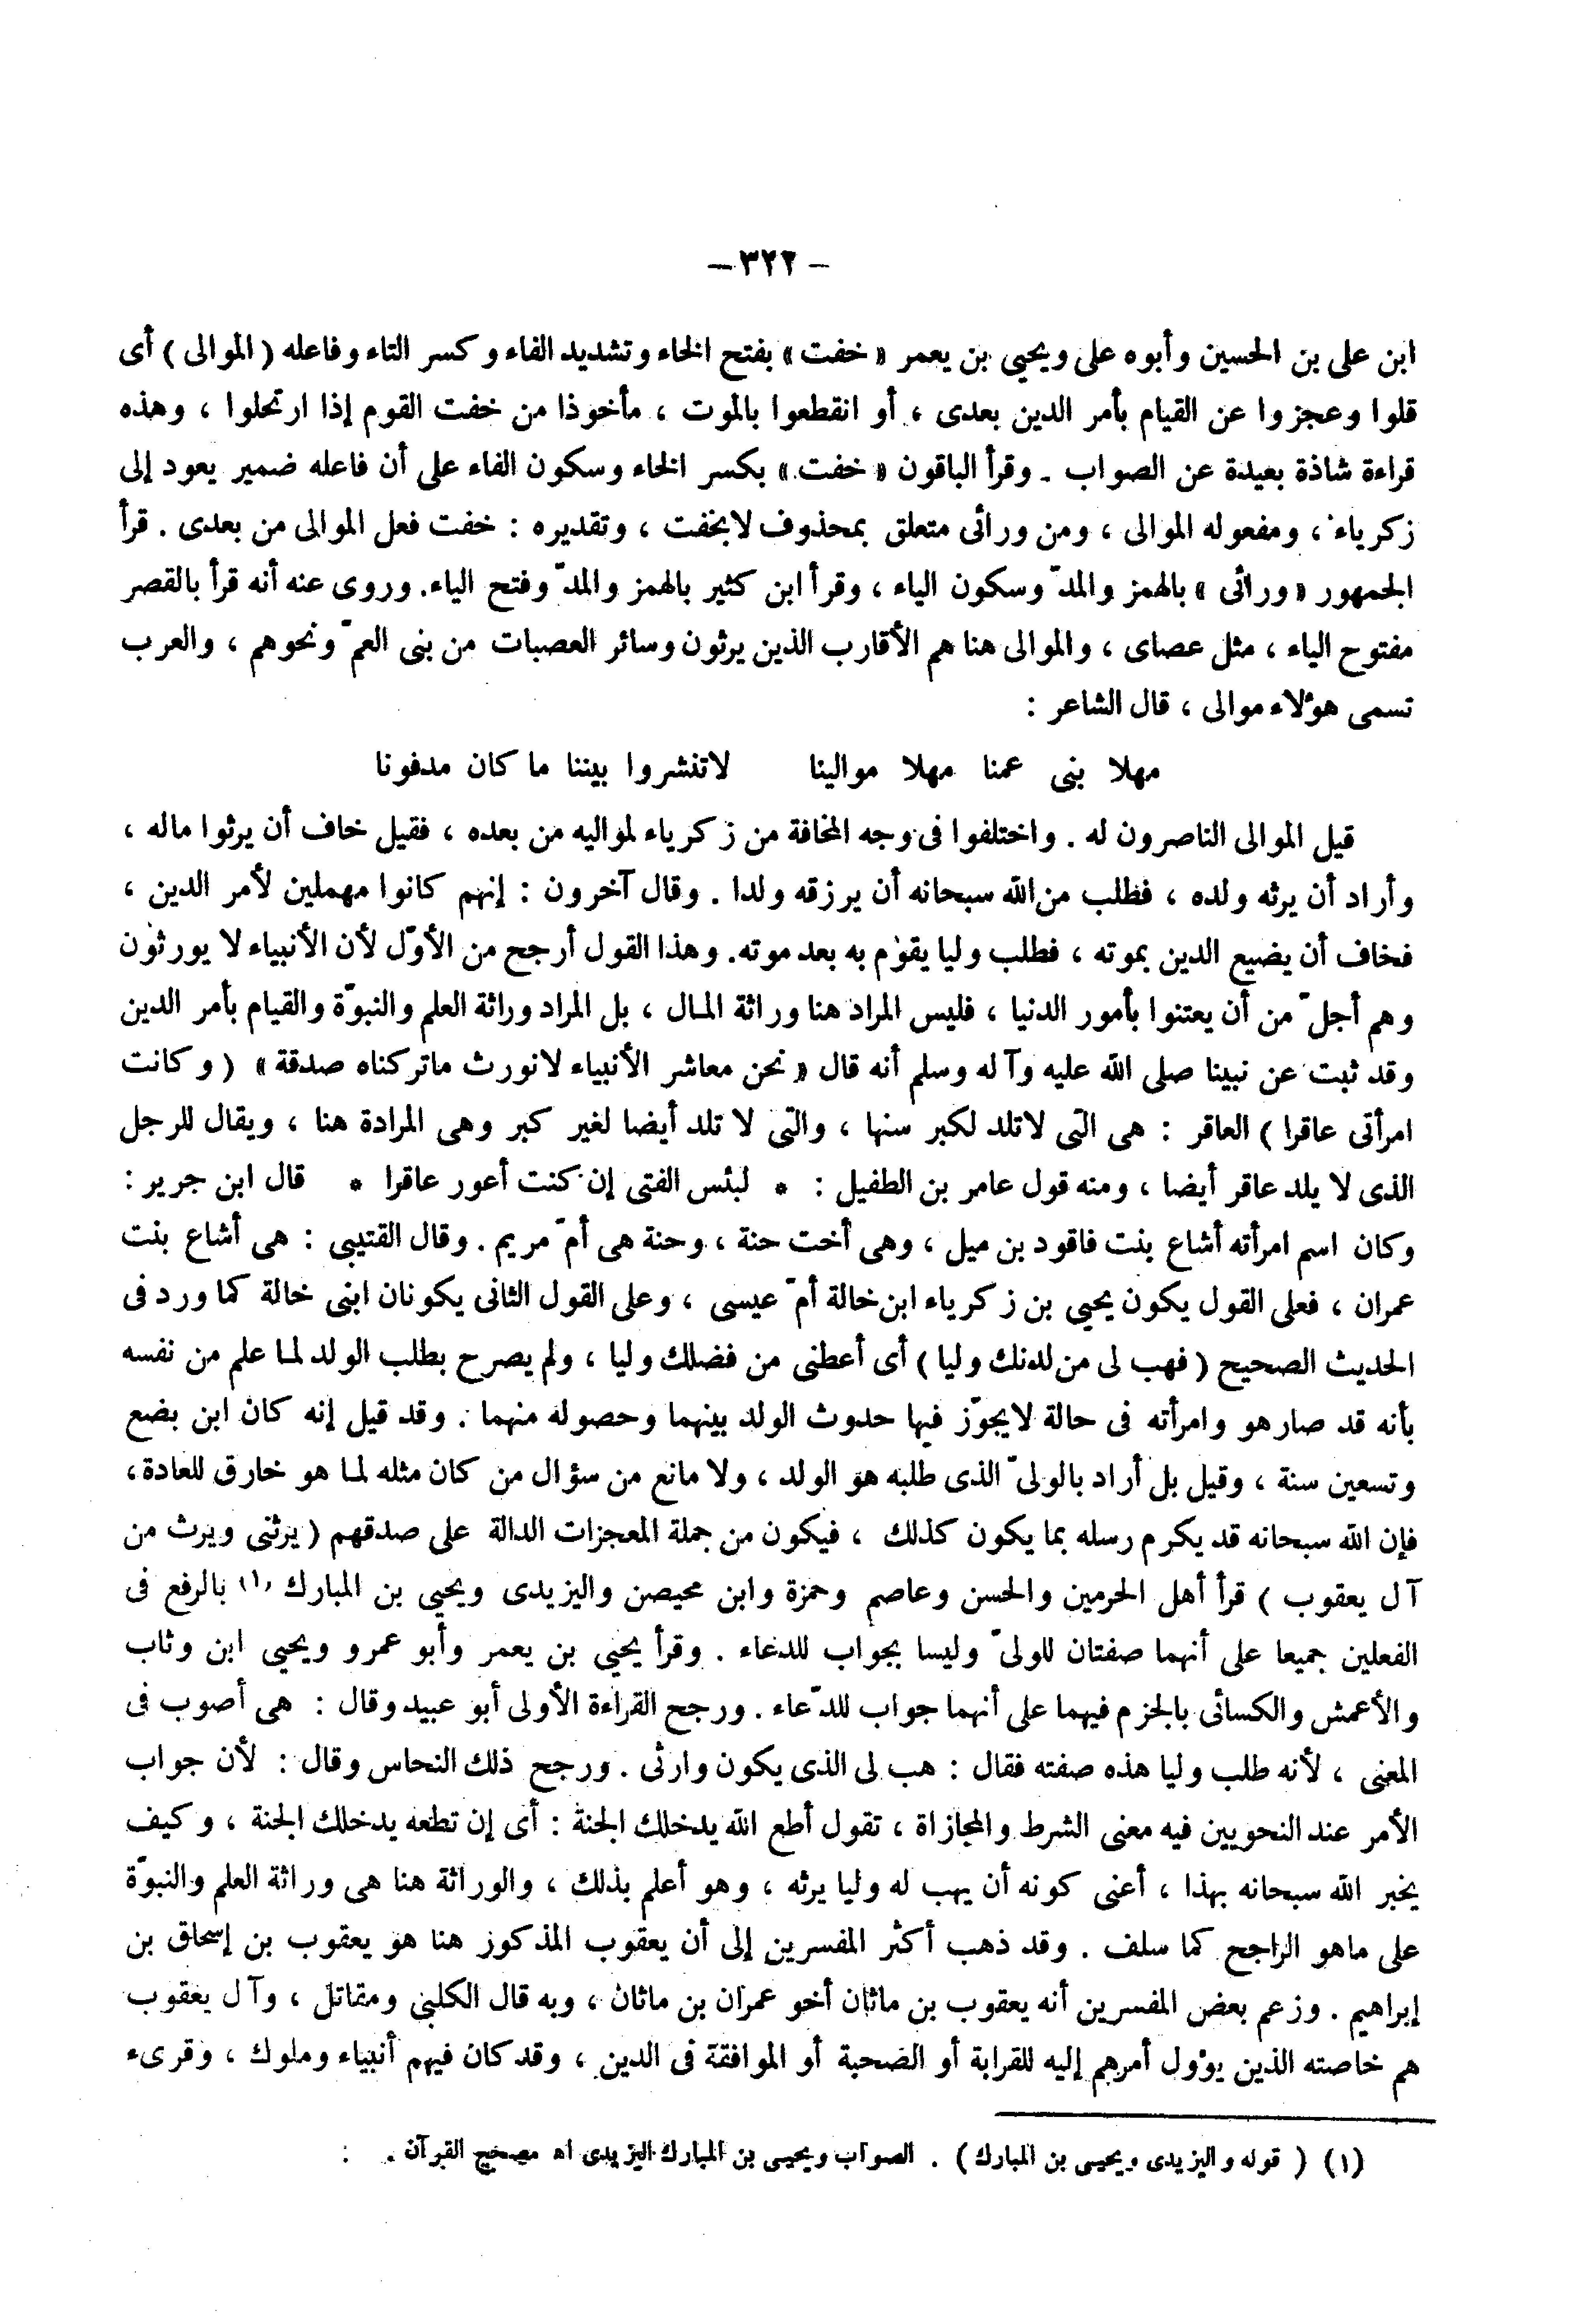 – ٣٢٢ –
ابن على بن الحسين وأبوه على ويحيى بن يعمر « خفت » بفتح الخاء وتشديد الفاء وكسر التاء وفاعله ( الموالى ) أى
قلوا وعجزوا عن القيام بأمر الدين بعدى ، أو انقطعوا بالموت ، مأخوذا من خفت القوم إذا ارتحلوا ، وهذه
قراءة شاذة بعيدة عن الصواب . وقرأ الباقون « خفت » بكسر الخاء وسكون الفاء على أن فاعله ضمير يعود إلى
زكرياء ، ومفعوله الموالى ، ومن ورائى متعلق بمحذوف لابخفت ، وتقديره : خفت فعل الموالى من بعدى . قرأ
الجمهور « ورائى » بالهمز والمدّ وسكون الياء ، وقرأ ابن كثير بالهمز والمدّ وفتح الياء. وروى عنه أنه قرأ بالقصر
مفتوح الياء ، مثل عصاى ، والموالى هنا هم الأقارب الذين يرثون وسائر العصبات من بنى العمّ ونحوهم ، والعرب
تسمى هؤلاء موالى ، قال الشاعر :
مهلا بنى عمنا مهلا موالينا لاتنشروا بيننا ما كان مدفونا
قيل الموالى الناصرون له . واختلفوا فى وجه المخافة من زكرياء لمواليه من بعده ، فقيل خاف أن يرثوا ماله ،
وأراد أن يرثه ولده ، فطلب من الله سبحانه أن يرزقه ولدا . وقال آخرون : إنهم كانوا مهملين لأمر الدين ،
فخاف أن يضيع الدين بموته ، فطلب وليا يقوم به بعد موته. وهذا القول أرجح من الأوّل لأن الأنبياء لا يورثون
وهم أجلّ من أن يعتنوا بأمور الدنيا ، فليس المراد هنا وراثة المال ، بل المراد وراثة العلم والنبوّة والقيام بأمر الدين
وقد ثبت عن نبينا صلى الله عليه وآله وسلم أنه قال « نحن معاشر الأنبياء لانورث ماتركناه صدقة » ( وكانت
امرأتى عاقرا ) العاقر : هى التى لاتلد لكبر سنها ، والتى لا تلد أيضا لغير كبر وهى المرادة هنا ، ويقال للرجل
الذى لا يلد عاقر أيضا ، ومنه قول عامر بن الطفيل : * لبئس الفتى إن كنت أعور عاقرا * قال ابن جرير :
وكان اسم امرأته أشاع بنت فاقود بن ميل ، وهى أخت حنة ، وحنة هى أمّ مريم . وقال القتيبى : هى أشاع بنت
عمران ، فعلى القول يكون يحيى بن زكرياء ابن خالة أمّ عيسى ، وعلى القول الثانى يكونان ابنى خالة كما ورد فى
الحديث الصحيح ( فهب لى من لدنك وليا ) أى أعطنى من فضلك وليا ، ولم يصرح بطلب الولد لما علم من نفسه
بأنه قد صار هو وامرأته فى حالة لايجوّز فيها حدوث الولد بينهما وحصوله منهما . وقد قيل إنه كان ابن بضع
وتسعين سنة ، وقيل بل أراد بالولىّ الذى طلبه هو الولد ، ولا مانع من سؤال من كان مثله لما هو خارق للعادة ،
فإن الله سبحانه قد يكرم رسله بما يكون كذلك ، فيكون من جملة المعجزات الدالة على صدقهم ( يرثنى ويرث من
آل يعقوب ) قرأ أهل الحرمين والحسن وعاصم وحمزة وابن محيصن واليزيدى ويحيى بن المبارك (١) بالرفع فى
الفعلين جميعا على أنهما صفتان للولىّ وليسا بجواب للدعاء . وقرأ يحيى بن يعمر وأبو عمرو ويحيى ابن وثاب
والأعمش والكسائى بالجزم فيهما على أنهما جواب للدّعاء . ورجح القراءة الأولى أبو عبيد وقال : هى أصوب فى
المعنى ، لأنه طلب وليا هذه صفته فقال : هب لى الذى يكون وارثى . ورجح ذلك النحاس وقال : لأن جواب
الأمر عند النحويين فيه معنى الشرط والمجازاة ، تقول أطع الله يدخلك الجنة : أى إن تطعه يدخلك الجنة ، وكيف
يخبر الله سبحانه بهذا ، أعنى كونه أن يهب له وليا يرثه ، وهو أعلم بذلك ، والوراثة هنا هى وراثة العلم والنبوّة
على ماهو الراجح كما سلف . وقد ذهب أكثر المفسرين إلى أن يعقوب المذكور هنا هو يعقوب بن إسحاق بن
إبراهيم . وزعم بعض المفسرين أنه يعقوب بن ماثان أخو عمران بن ماثان ، وبه قال الكلبى ومقاتل ، وآل يعقوب
هم خاصته الذين يؤول أمرهم إليه للقرابة أو الصحبة أو الموافقة فى الدين ، وقد كان فيهم أنبياء وملوك ، وقرىء
(١) ( قوله واليزيدى ويحيى بن المبارك ) . الصواب ويحيى بن المبارك اليزيدى اه مصحح القرآن .